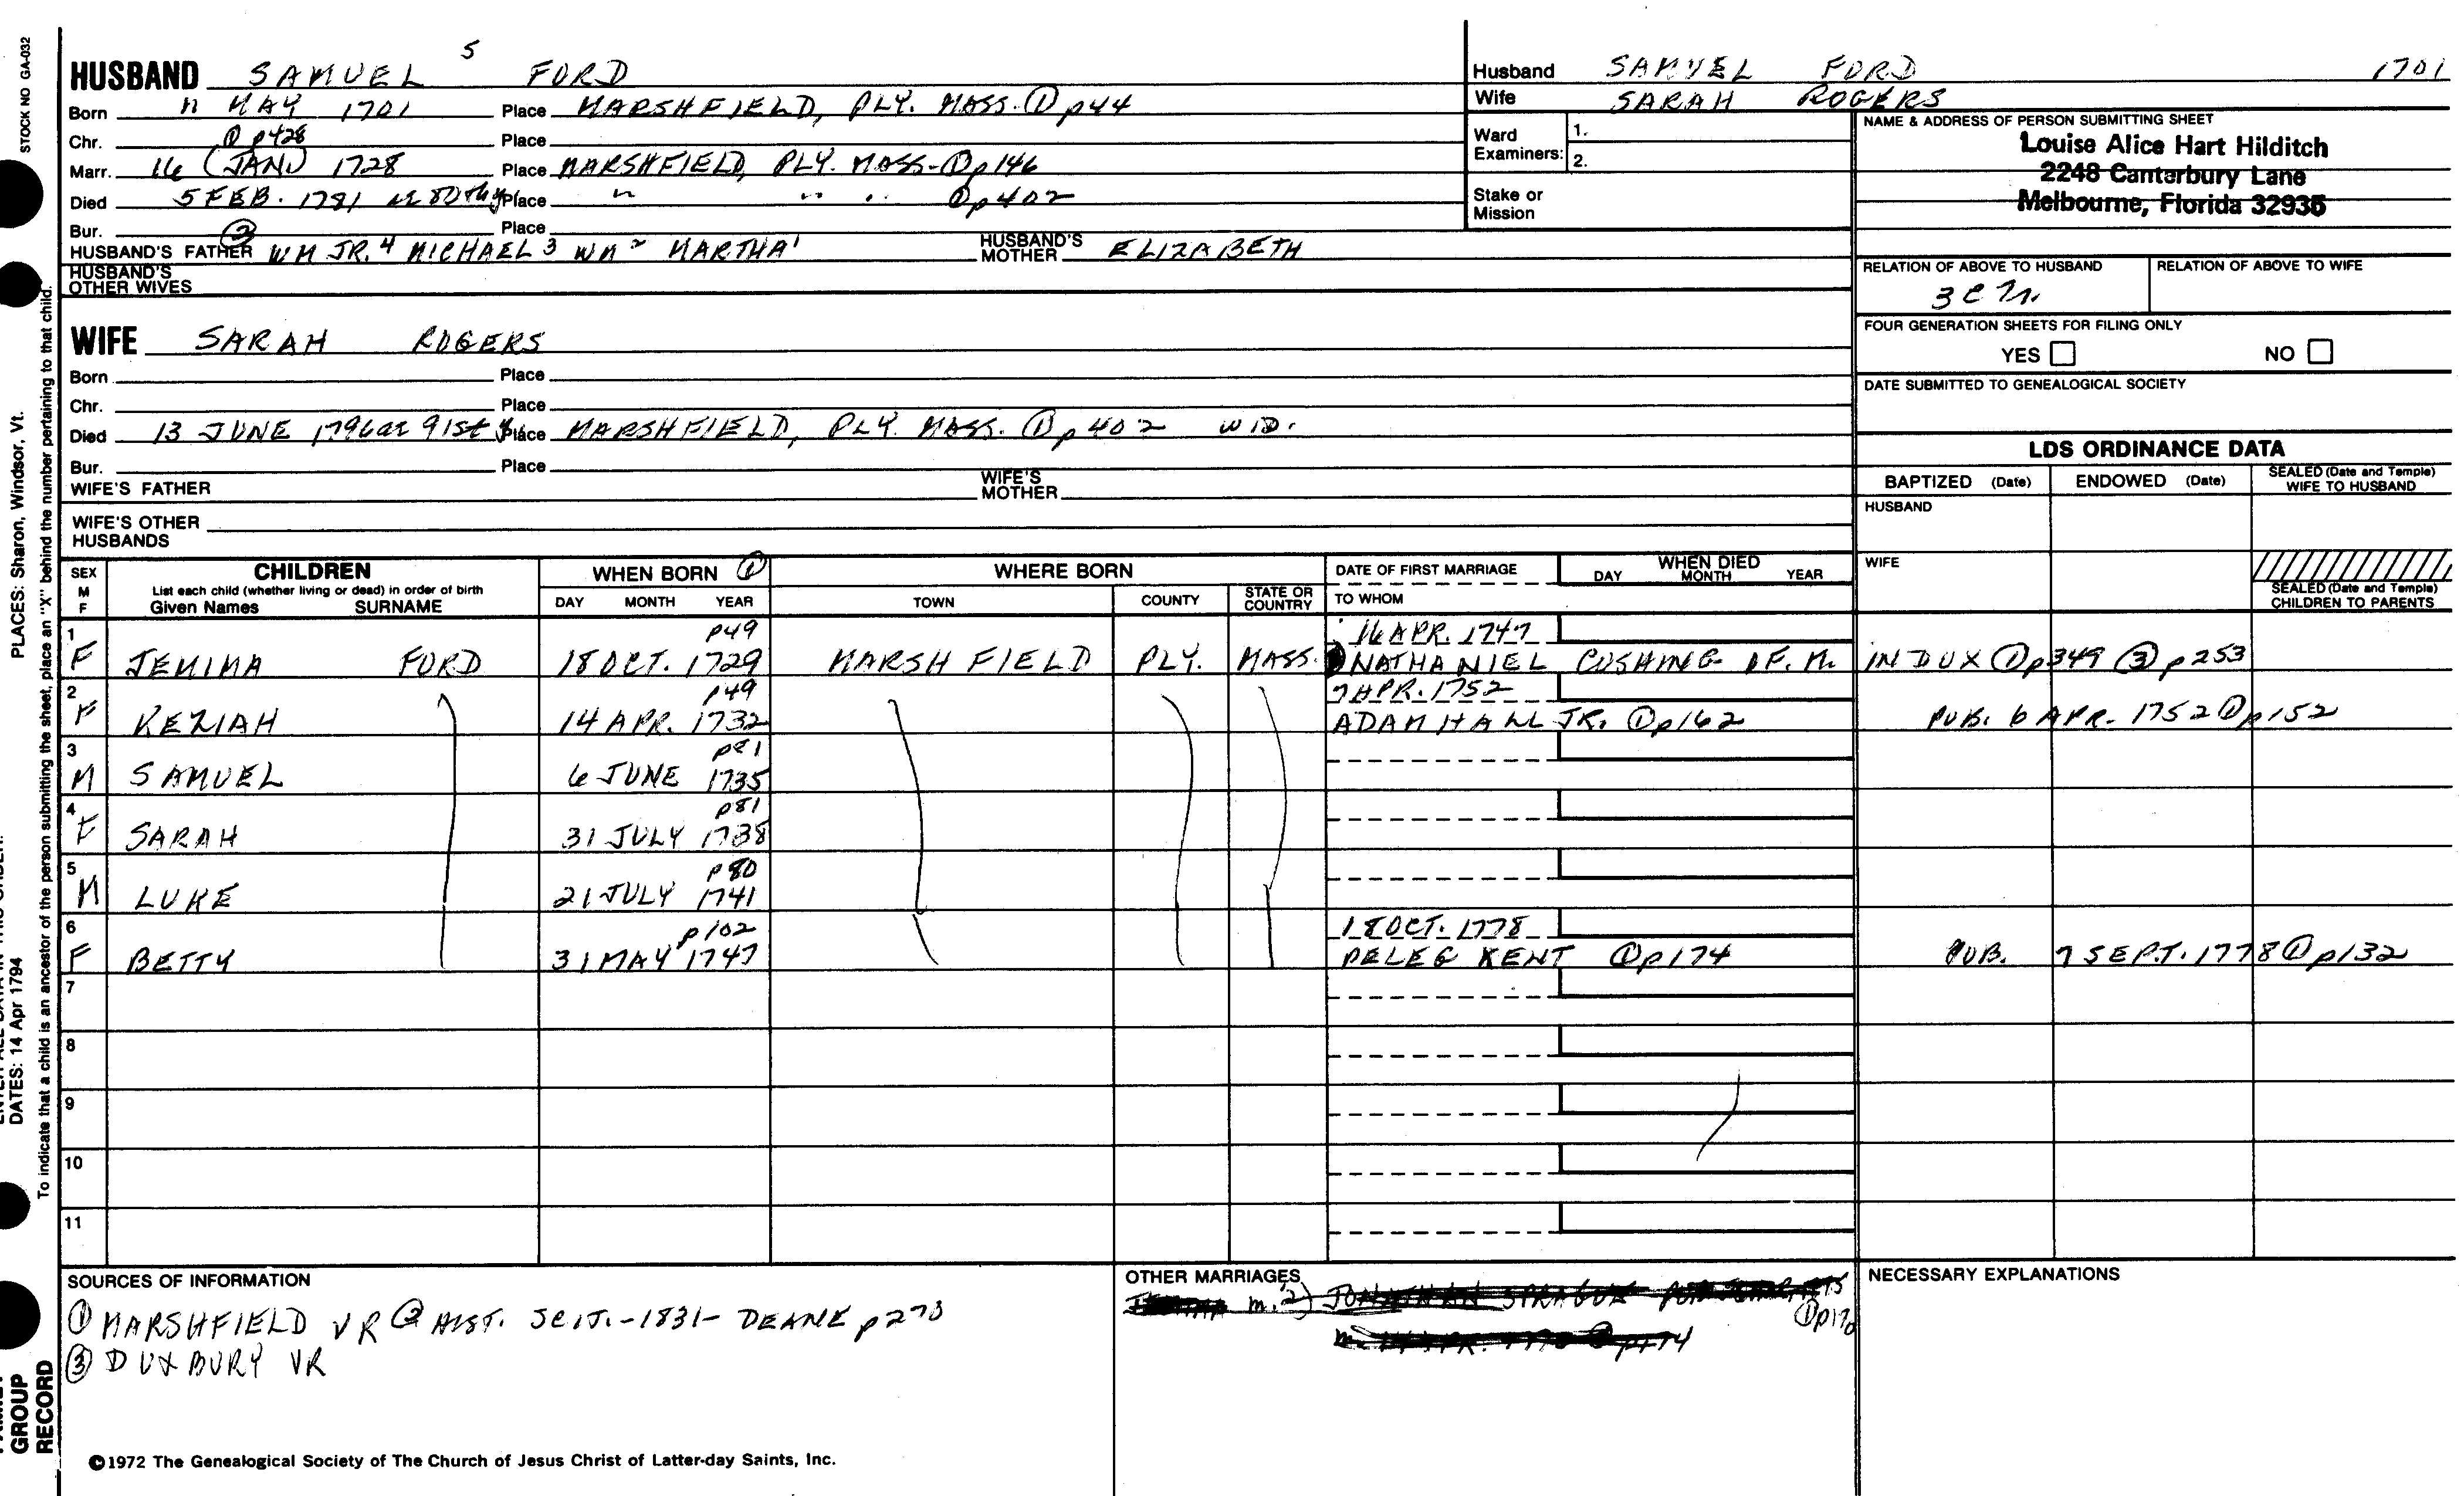 STOCK NO GA-032
PLACES: Sharon, Windsor, Vt.
DATES: 14 Apr 1794
To indicate that a child is an ancestor of the person submitting the sheet, place an "X" behind the number pertaining to that child.
GROUP
RECORD
HUSBAND SAMUEL 5 FORD
Born MAY 1701 Place MARSHFIELD, PLY. MASS. ① p44
Chr. ① p428 Place
Marr. 16 (JAN) 1728 Place MARSHFIELD, PLY. MASS-① p146
Died 5 FEB. 1781 Place " " " ① p402
Bur. Place
② 
HUSBAND'S FATHER WM JR. 4 MICHAEL 3 WM 2 MARTHA 1 HUSBAND'S MOTHER ELIZABETH
HUSBAND'S OTHER WIVES
WIFE SARAH ROGERS
Born Place
Chr. Place
Died 13 JUNE 1796 ae 91st Place MARSHFIELD, PLY. MASS. ① p402 WID.
Bur. Place
WIFE'S FATHER WIFE'S MOTHER
WIFE'S OTHER HUSBANDS
Husband SAMUEL FORD 1701
Wife SARAH ROGERS
Ward Examiners: 1.
2.
Stake or Mission
NAME & ADDRESS OF PERSON SUBMITTING SHEET
Louise Alice Hart Hilditch
2248 Canterbury Lane
Melbourne, Florida 32935
RELATION OF ABOVE TO HUSBAND RELATION OF ABOVE TO WIFE
FOUR GENERATION SHEETS FOR FILING ONLY
YES NO
DATE SUBMITTED TO GENEALOGICAL SOCIETY
LDS ORDINANCE DATA
BAPTIZED (Date) ENDOWED (Date) SEALED (Date and Temple) WIFE TO HUSBAND
HUSBAND
WIFE
SEALED (Date and Temple) CHILDREN TO PARENTS
SEX M F
CHILDREN
List each child (whether living or dead) in order of birth
Given Names SURNAME
WHEN BORN ①
DAY MONTH YEAR
WHERE BORN
TOWN COUNTY STATE OR COUNTRY
DATE OF FIRST MARRIAGE
TO WHOM
WHEN DIED
DAY MONTH YEAR
1 p49 16 APR. 1747
F JEMIMA FORD 18 OCT. 1729 MARSHFIELD PLY. MASS. NATHANIEL CUSHING OF. M. IN DUX ① p349 ③ p253
2 p49 7 APR. 1752
F KEZIAH 14 APR. 1732 ADAM HALL JR. ① p162 PUB. 6 APR. 1752 ① p152
3 p81
M SAMUEL 6 JUNE 1735
4 p81
F SARAH 31 JULY 1738
5 p80
M LUKE 21 JULY 1741
6 p102 18 OCT. 1778
F BETTY 31 MAY 1747 PELEG KENT ① p174 PUB. 7 SEPT. 1778 ① p132
7
8
9
10
11
SOURCES OF INFORMATION
① MARSHFIELD VR ② HIST. SCIT.-1831- DEANE p273
③ DUXBURY VR
OTHER MARRIAGES
m. 2) JONATHAN SPRAGUE
① p170
NECESSARY EXPLANATIONS
©1972 The Genealogical Society of The Church of Jesus Christ of Latter-day Saints, Inc.